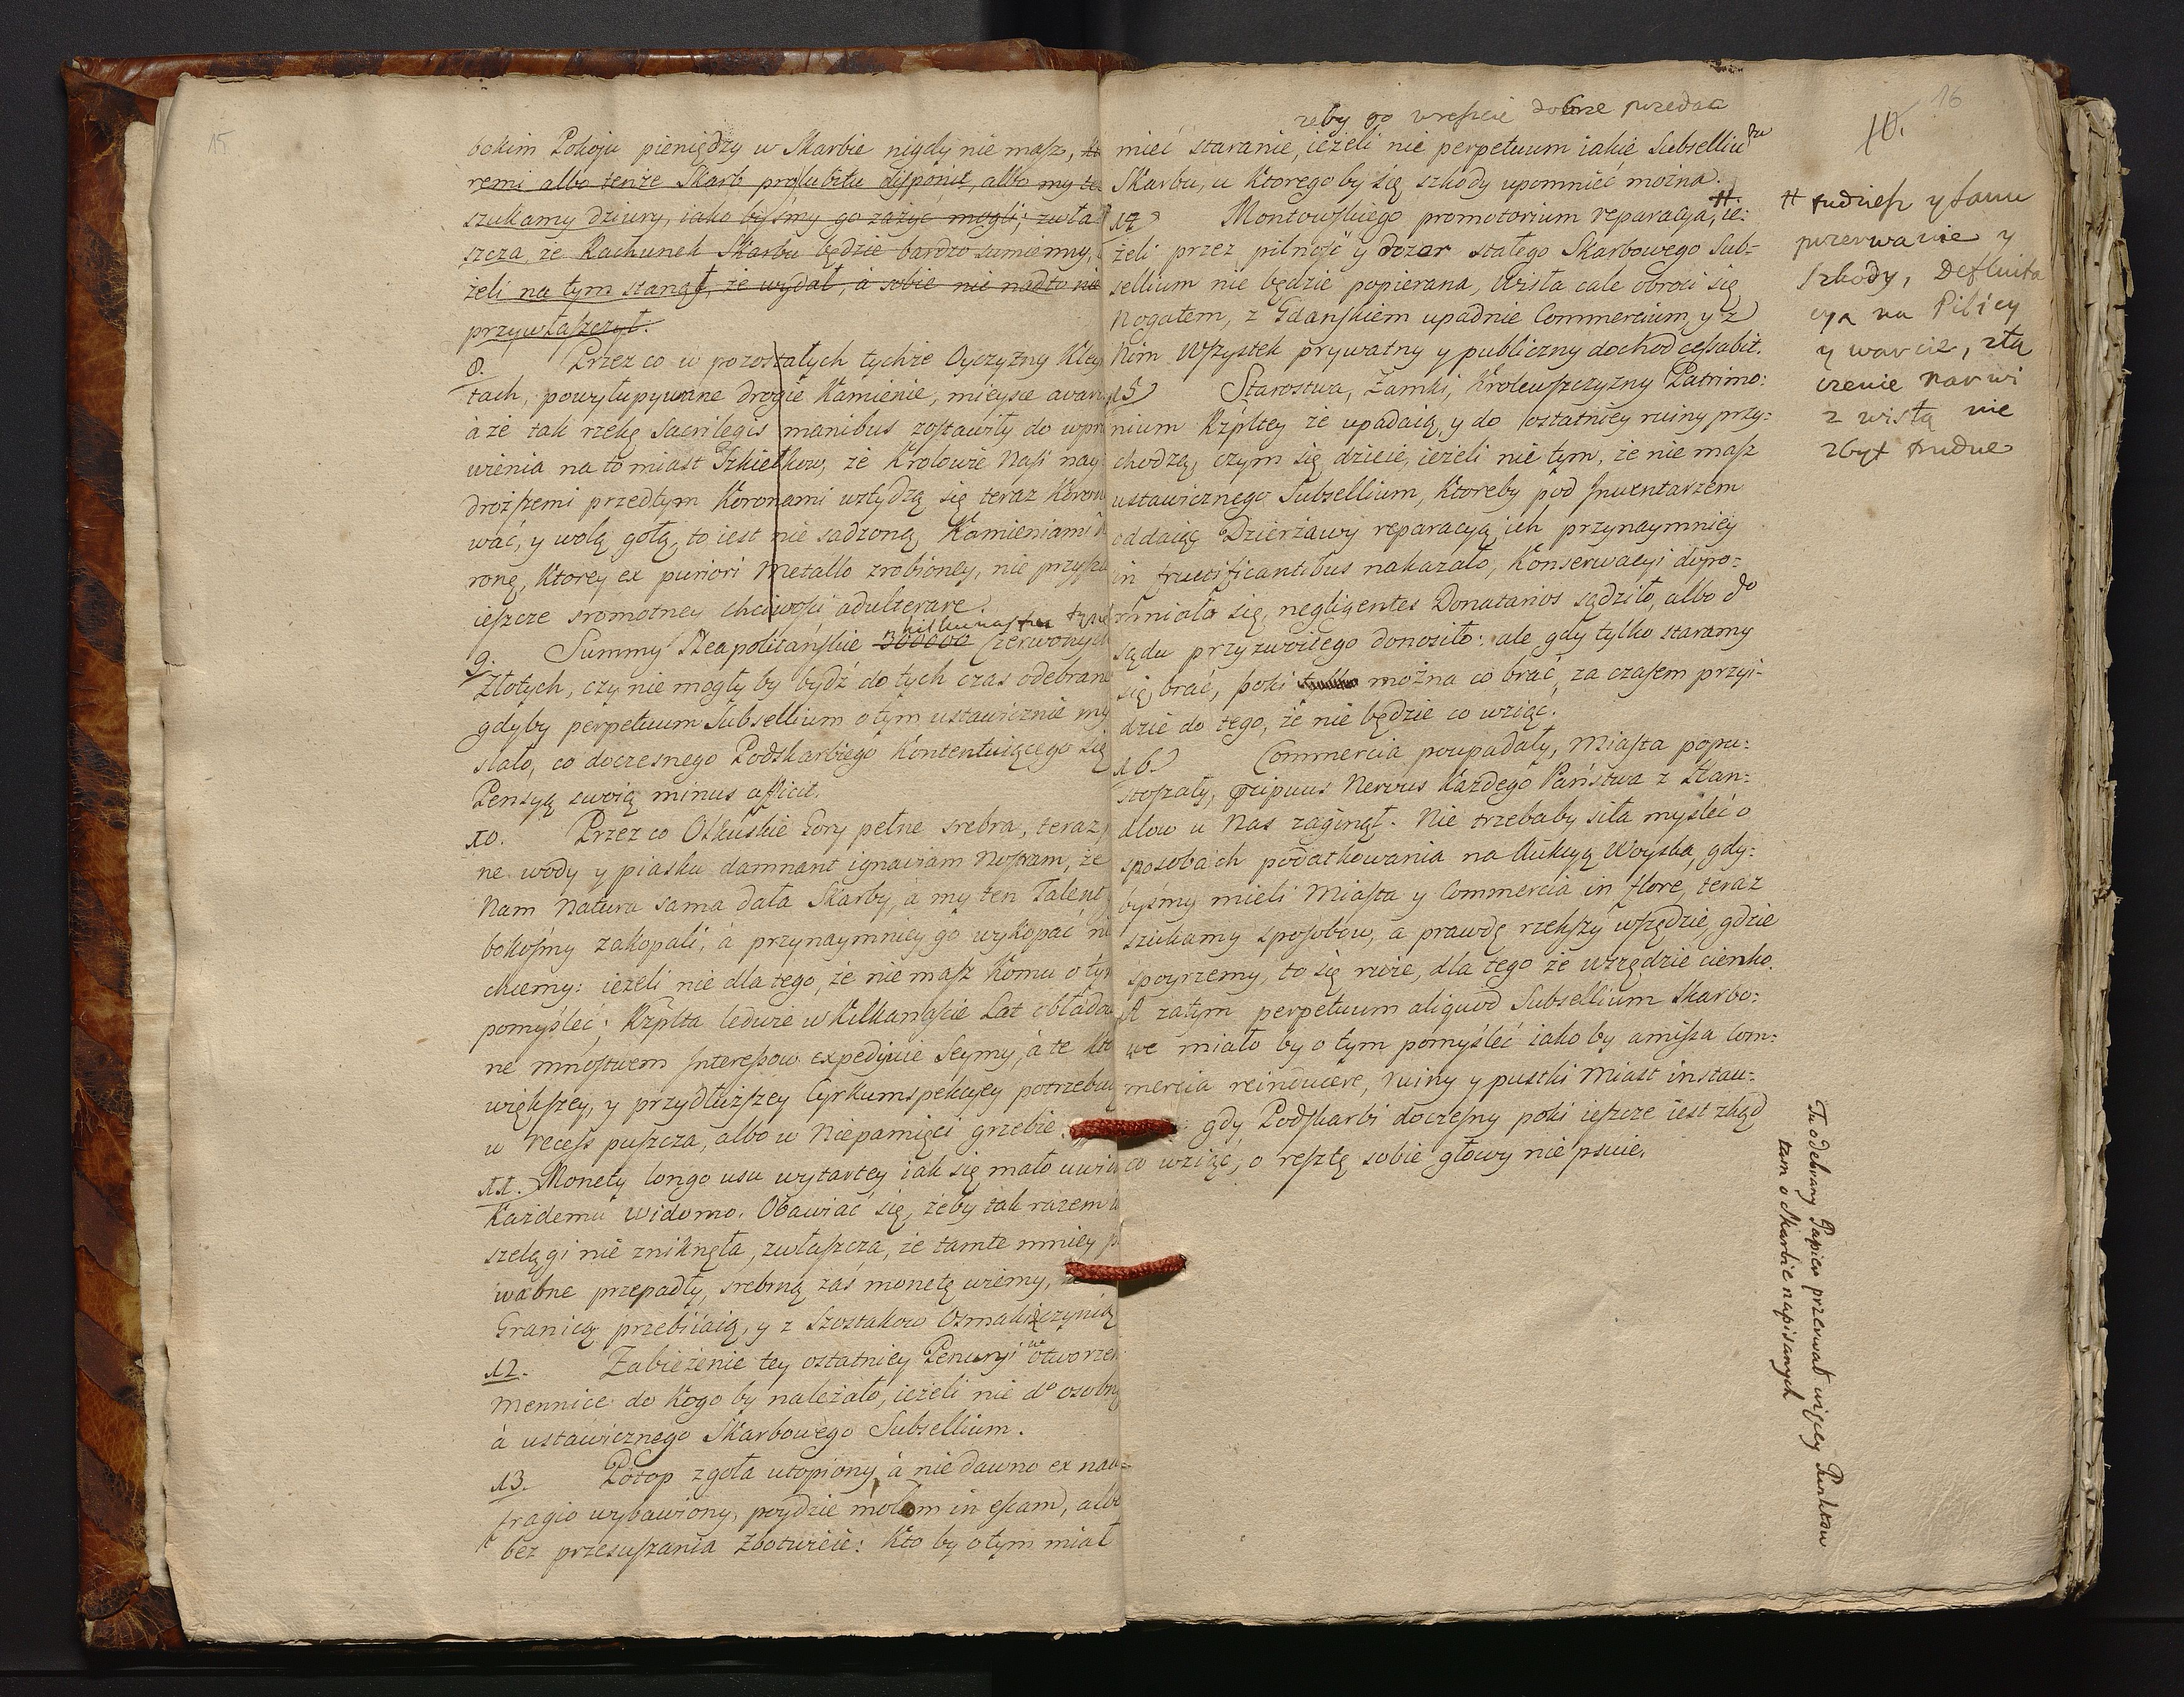 15
bokim Pokoju pieniędzy w Skarbie nigdy nie masz,
remi albo tenże Skarb pro lubitu disponit, albo my te
szukamy dziury, iako byśmy go zażyć mogli; zwła
szcza, że Rachunek Skarbu będzie bardzo sumienny,
żeli na tym stanął, że wydał, à sobie nie nadto nie
przywłaszczył.
8. Przez co w pozostałych tychże Oyczyzny Kley
tach, powyłupywane drogie Kamienie, mieysce avar
à że tak rzekę Sacrilegis manibus zostawiły do wpra
wienia na to miast Szkiełkow, że Krolowie Nasi nay
droższemi przedtym Koronami wstydzą się teraz Koron
wać, y wolą gołą, to iest nie sadzoną Kamieniami
ronę, Ktorey ex puriori Metallo zrobioney, nie przysz
ieszcze sromotney chciwości adulterare.
kilkunastu tysię
9. Summy Neapolitańskie 300000 Czerwonych
Złotych, czy nie mogły by bydź do tych czas odebrane
gdyby perpetuum Subsellium o tym ustawicznie my
slało, co doczesnego Podskarbiego Kontentuiącego się
Pensyą swoią minus afficit.
10. Przez co Olkuskie Gory pełne srebra, teraz
ne wody y piasku damnant ignaviam Nostram, że
Nam Natura sama dała Skarby, à my ten Talent
bokośmy zakopali, à przynaymniey go wykopać ni
chcemy: ieżeli nie dla tego, że nie masz Komu o tym
pomyśleć; Rzplta ledwie w Kilkanaście Lat obłado
ne mnostwem Interessow expedyuie Seymy, à te Kto
większey, y przydłuższey Cyrkumspekcyey potrzebu
w recess puszcza, albo w Niepamięci grzebie.
11. Monety longo usu wytartey iak się mało uwi
Każdemu widomo. Obawiać się, żeby tak razem
szelągi nie zniknęła, zwłaszcza, że tamte mniey p
wabne przepadły, srebrną zaś monetę wiemy,
Granicą przebiiaią, y z Szostakow Osmaki czynią
12. Zabieżenie tey ostatniey Penuryi w otworzen
Mennice do Kogo by należało, ieżeli nie do osobn
à ustawicznego Skarbowego Subsellium.
13. Potop zgoła utopiony à nie dawno ex nau=
fragio wybawiony, poydzie molom in escam, albo
bez przesuszania zbotwieie: Kto by o tym miał
16
10.
żeby go wreszcie dobrze przedać
mieć staranie, ieżeli nie perpetuum iakie Subselliu
Skarbu, u Ktorego by się szkody upomnieć można.
14 Montowskiego promotorium reparacya, #. ie:
żeli przez pilność y dozor stałego Skarbowego Sub=
sellium nie będzie popierana, Wisła cale obroci się
Nogatem, z Gdańskiem upadnie Commercium, y z
Nim Wszystek prywatny y publiczny dochod cessabit.
15 Starostwa, Zamki, Krolewszczyzny Patrimo:
nium Rzpltey że upadaią, y do ostatniey ruiny przy:
chodzą, czym się dzieie, ieżeli nie tym, że nie masz
ustawicznego Subsellium, Ktoreby pod Inwentarzem
oddaiąc Dzierżawy reparacyą ich przynaymniey
in fructificantibus nakazało, Konserwacyi dopo=
mniało się, negligentes Donatarios sądziło, albo do
sądu przyzwoitego donosiło: ale gdy tylko staramy
się brać, poki można co brać, za czasem przyi=
dzie do tego, że nie będzie co wziąć.
16 Commercia poupadały, Miasta popu:
stoszały, pripuus Nervus Każdego Państwa z Han=
dlow u Nas zaginął. Nie trzebaby siła myśleć o
sposobach podatkowania na Aukcyą Woyska, gdy:
byśmy mieli Miasta y Commercia in flore, teraz
szukamy sposobow, a prawdę rzekszy wszędzie, gdzie
spoyrzemy, to się rwie, dla tego że wszędzie cienko.
A zatym perpetuum aliquod Subsellium Skarbo:
we miało by o tym pomyśleć iako by amissa Com:
mercia reinducere, ruiny y pustki Miast instau=
gdy Podskarbi doczesny poki ieszcze iest zkąd
co wziąć, o resztę sobie głowy nie psuie.
# tudzież y tamu
przerwanie y
szkody, Defluita
cya na Pilicy
y warcie, złą
czenie narwi
z wisłą nie
zbyt trudne
Tu odebrany Papier przerwał więcey Punktow
tam o Skarbie napisanych